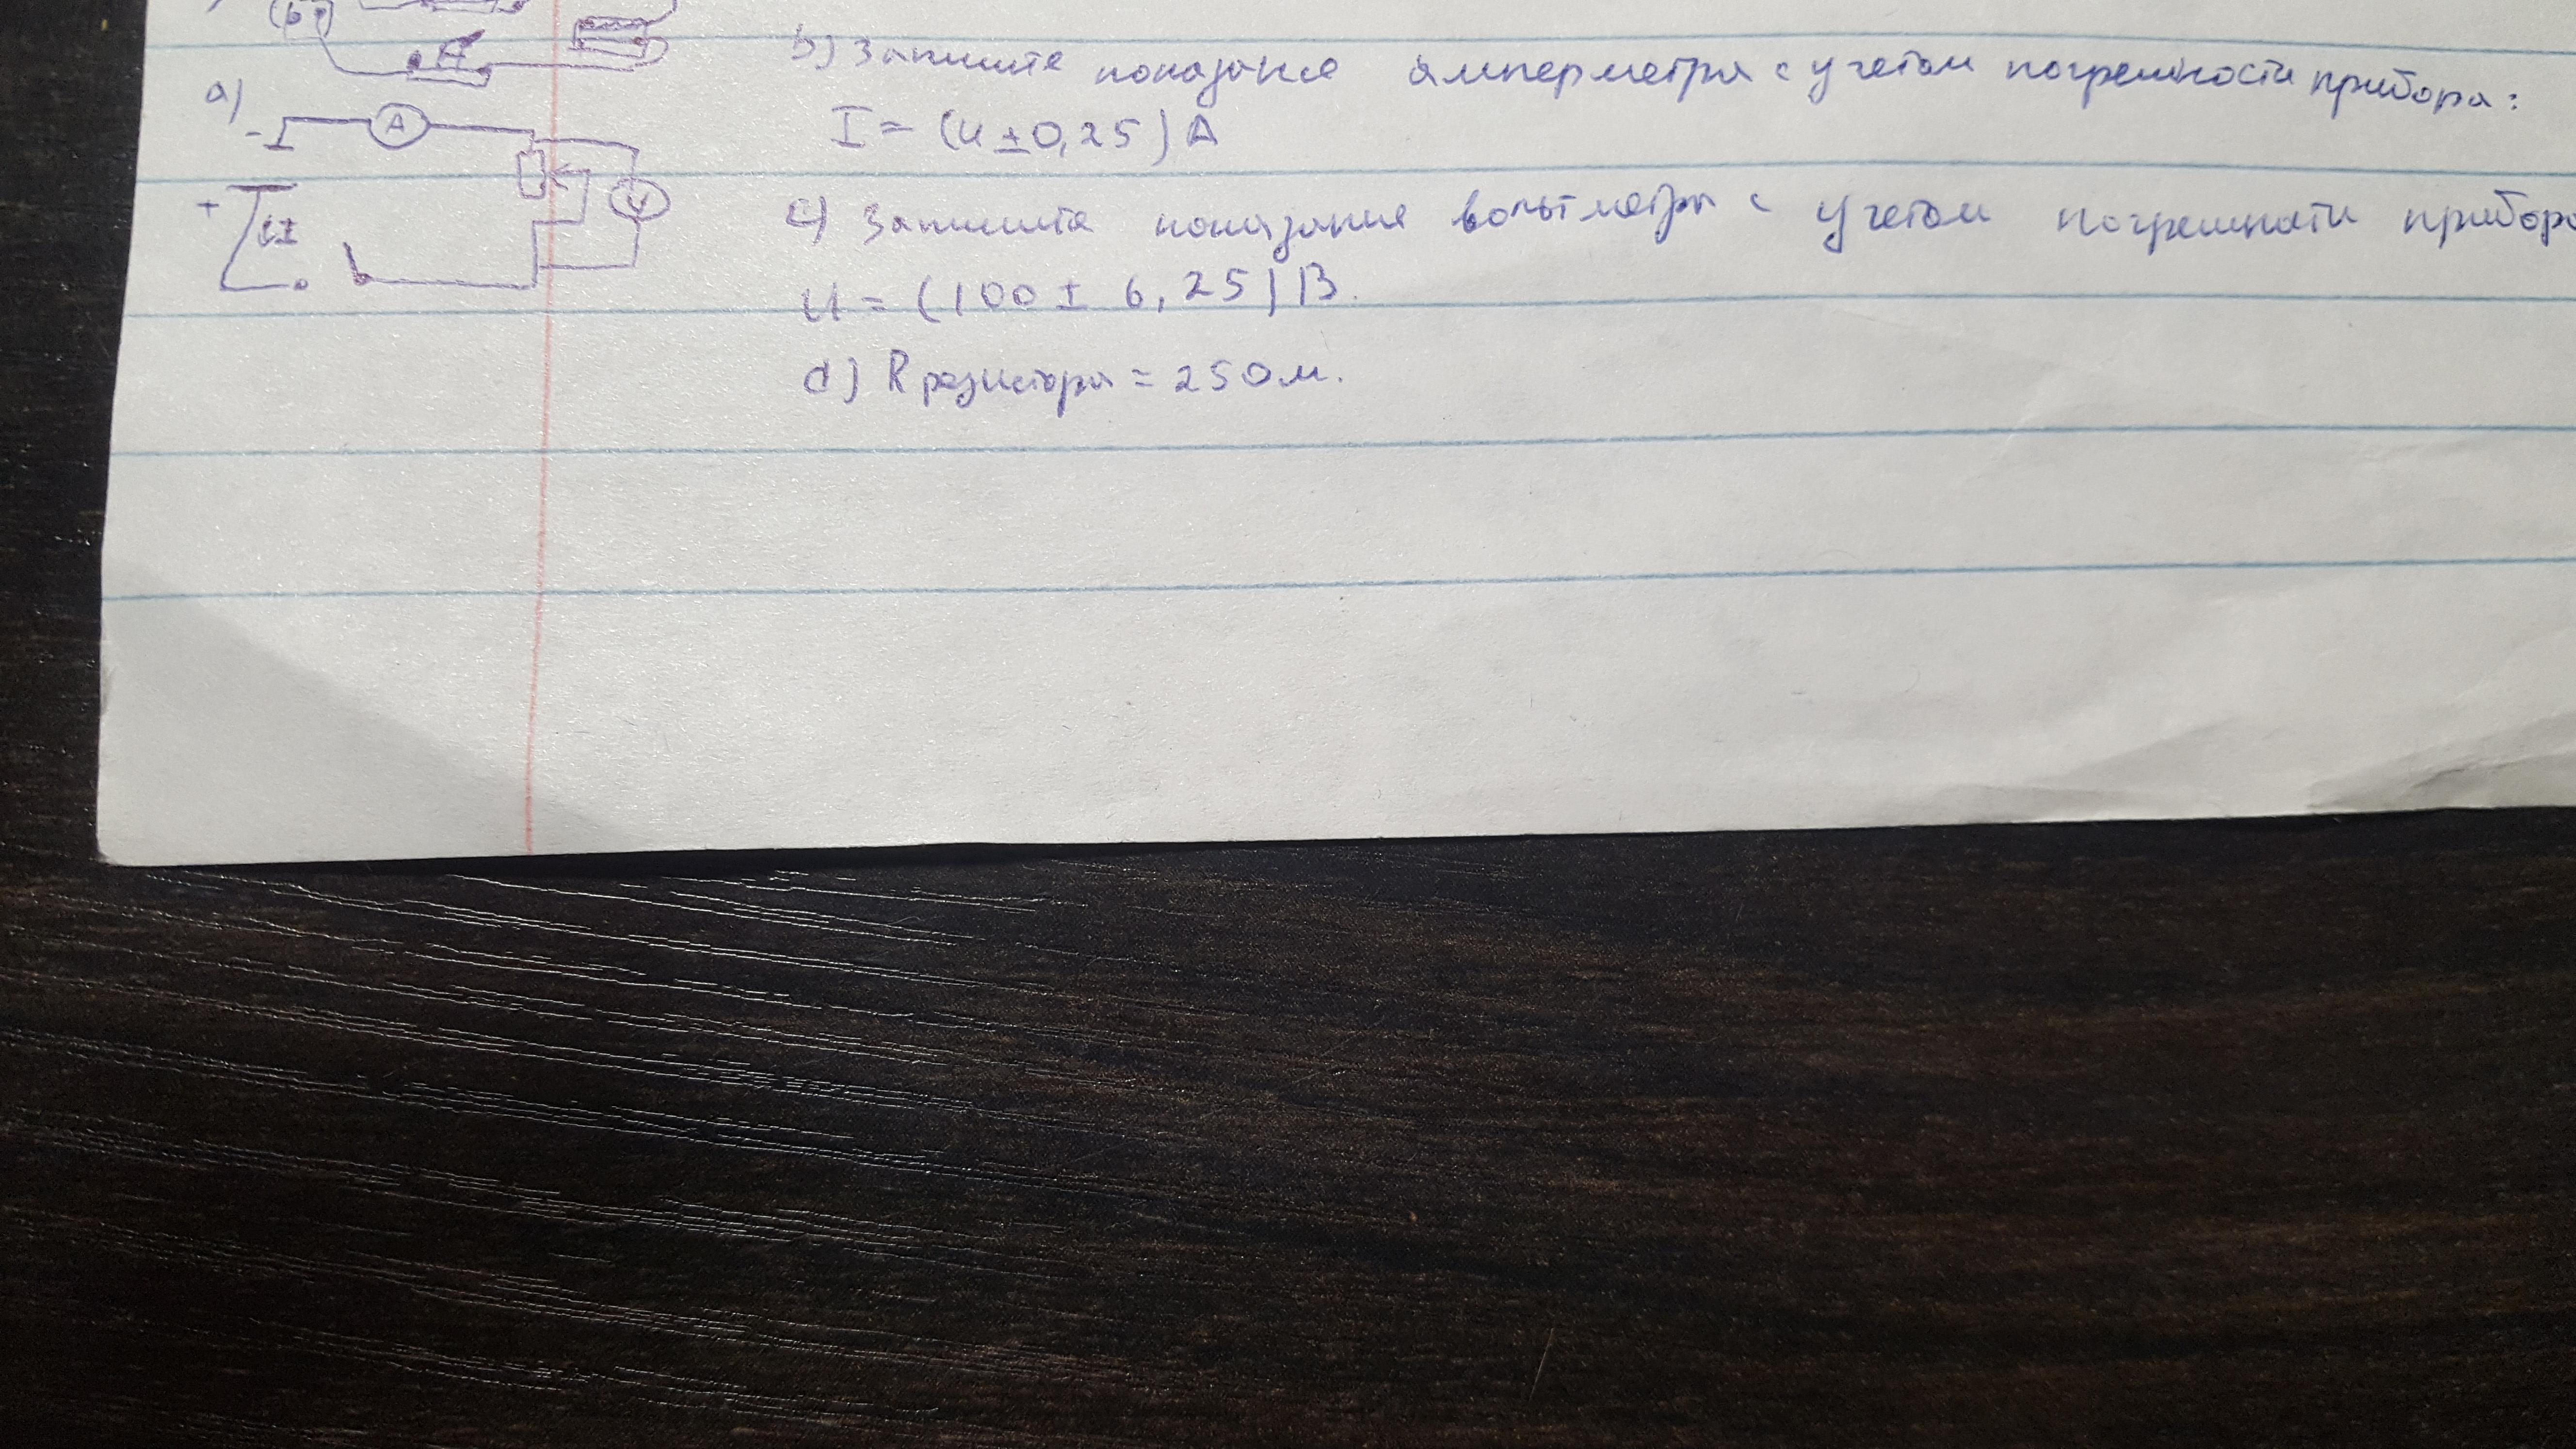 b) Запишите показание амперметра с учетом погрешности прибора:
a)
- A
I = (4 ± 0,25) А
+ V
c) Запишите показание вольтметра с учетом погрешности прибора
U = (100 ± 6,25) В.
d) R резистора = 25 Ом.